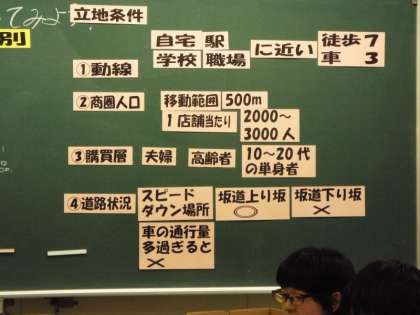 てみよう
別
立地条件
自宅 駅
学校 職場
に近い
徒歩 7
車 3
①動線
②商圏人口
移動範囲 500m
1店舗当たり
2000～
3000人
③購買層 夫婦 高齢者
10～20代
の単身者
④道路状況
スピード
ダウン場所
坂道上り坂
◎
坂道下り坂
×
車の通行量
多過ぎると
×